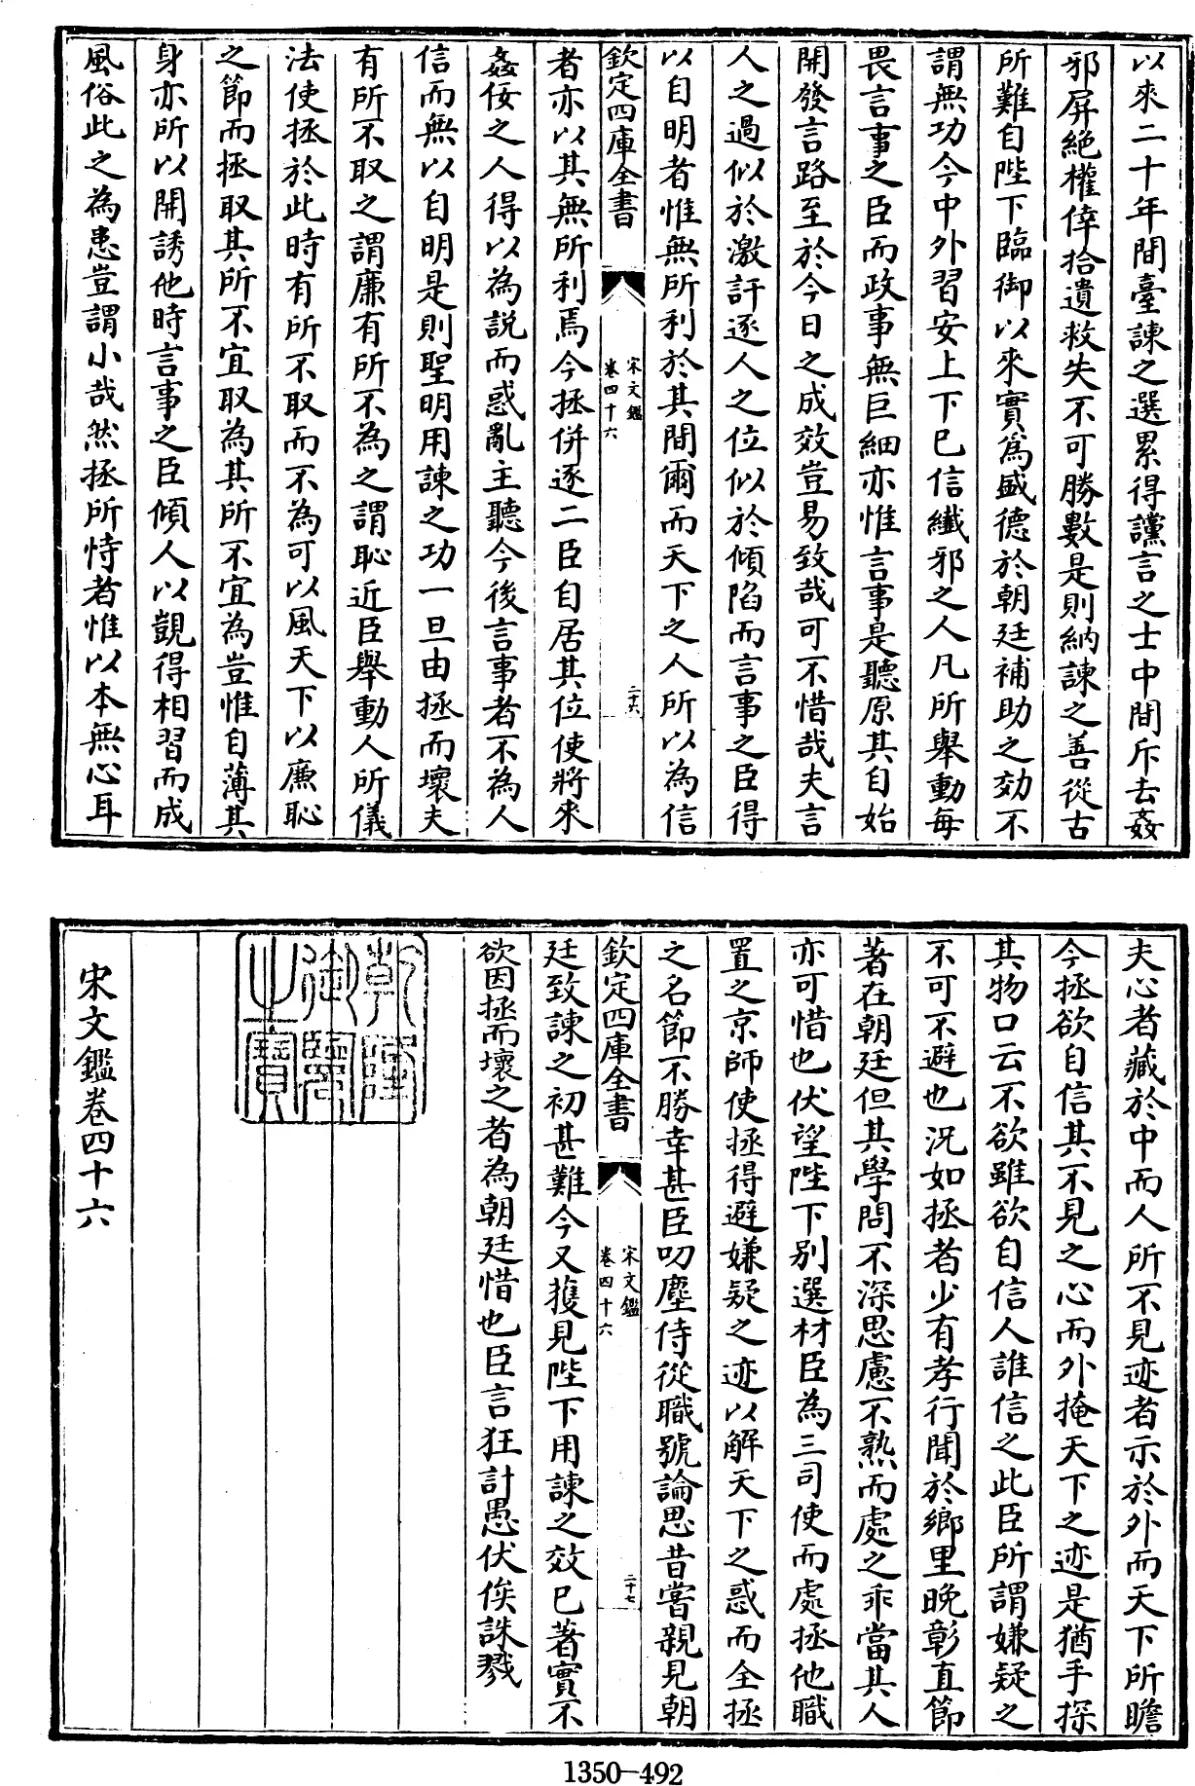 以來二十年間臺諫之選累得讜言之士中間斥去姦
邪屏絶權倖拾遺救失不可勝數是則納諫之善從古
所難自陛下臨御以來實爲盛德於朝廷補助之効不
謂無功今中外習安上下已信纖邪之人凡所舉動每
畏言事之臣而政事無巨細亦惟言事是聽原其自始
開發言路至於今日之成效豈易致哉可不惜哉夫言
人之過似於激訐逐人之位似於傾陷而言事之臣得
以自明者惟無所利於其間爾而天下之人所以為信
欽定四庫全書
宋文鑑
卷四十六
二十六
者亦以其無所利焉今拯併逐二臣自居其位使將來
姦佞之人得以為説而惑亂主聽今後言事者不為人
信而無以自明是則聖明用諫之功一旦由拯而壞夫
有所不取之謂廉有所不為之謂恥近臣舉動人所儀
法使拯於此時有所不取而不為可以風天下以廉恥
之節而拯取其所不宜取為其所不宜為豈惟自薄其
身亦所以開誘他時言事之臣傾人以覬得相習而成
風俗此之為患豈謂小哉然拯所恃者惟以本無心耳
夫心者藏於中而人所不見迹者示於外而天下所瞻
今拯欲自信其不見之心而外掩天下之迹是猶手探
其物口云不欲雖欲自信人誰信之此臣所謂嫌疑之
不可不避也况如拯者少有孝行聞於鄉里晚彰直節
著在朝廷但其學問不深思慮不熟而處之乖當其人
亦可惜也伏望陛下別選材臣為三司使而處拯他職
置之京師使拯得避嫌疑之迹以解天下之惑而全拯
之名節不勝幸甚臣叨塵侍從職號論思昔嘗親見朝
欽定四庫全書
宋文鑑
卷四十六
二十七
廷致諫之初甚難今又獲見陛下用諫之效已著實不
欲因拯而壞之者為朝廷惜也臣言狂計愚伏俟誅戮
乾隆
御覽
之寶
宋文鑑卷四十六
1350-492